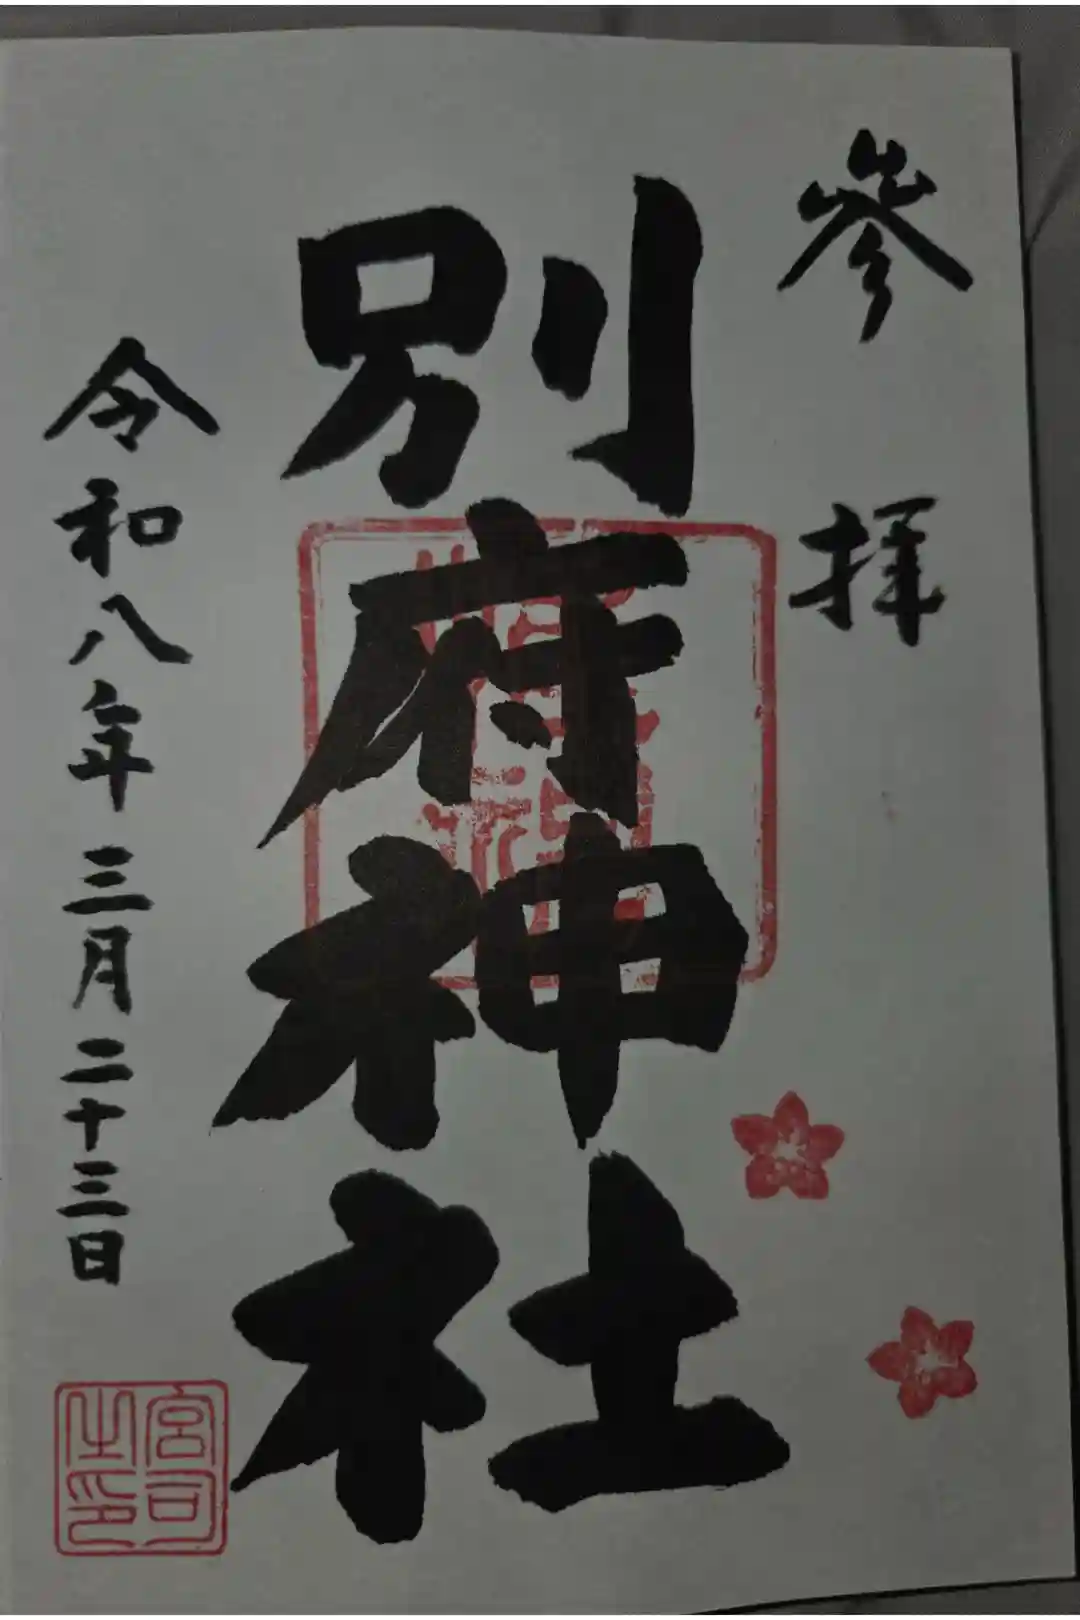 參拝
別府神社
令和八年三月二十三日
宮司
之印